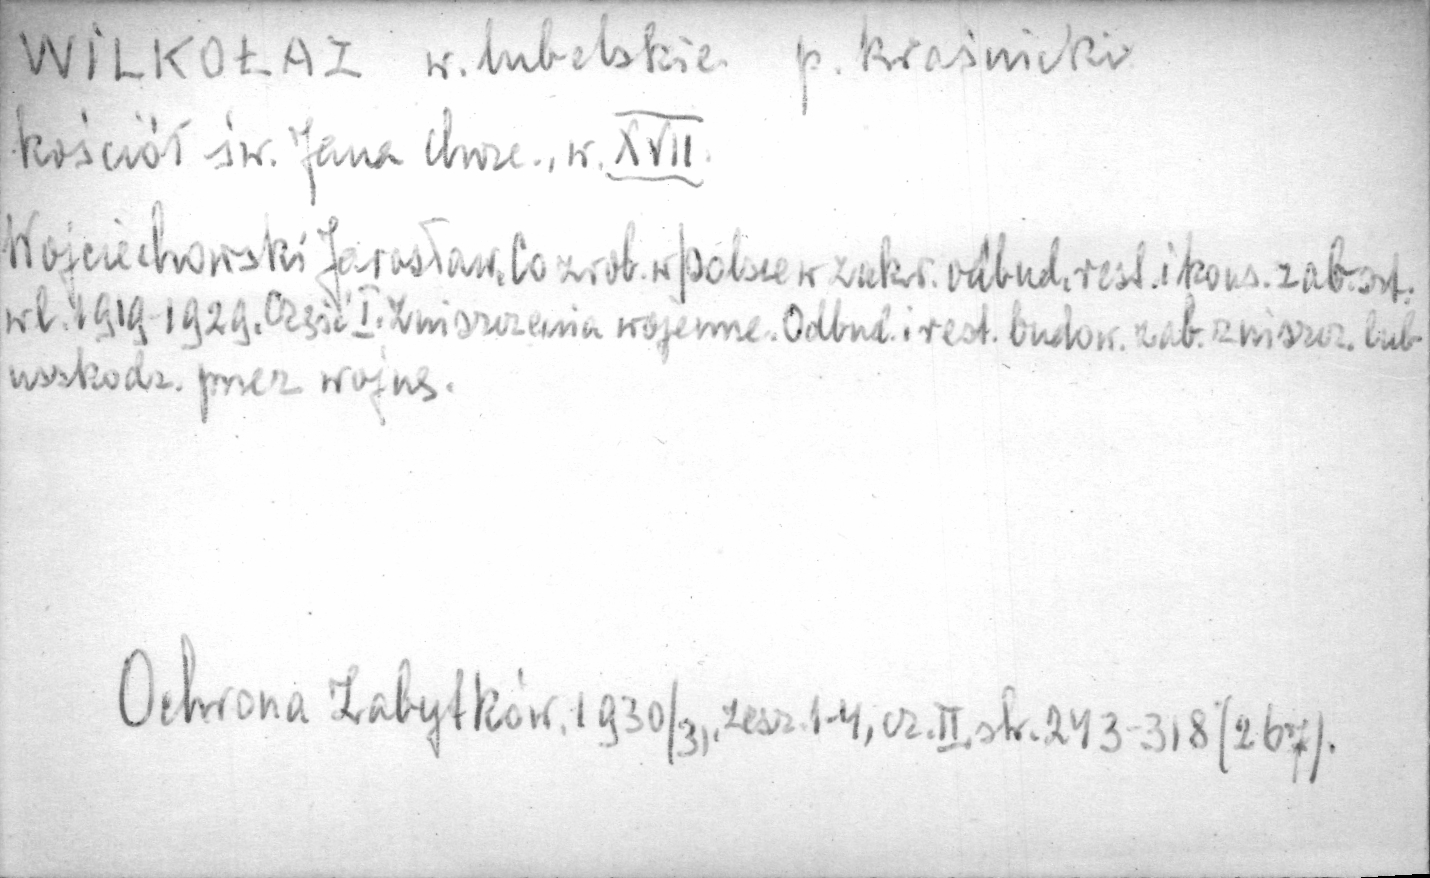 WILKOŁAZ w. lubelskie p. kraśnicki
kościół św. Jana Chrzc., w. XVII.
Wojciechowski Jarosław, Co zrob. w Polsce w zakr. odbud. rest. i kons. zab. szt.
w l. 1919-1929. Część I. Zniszczenia wojenne. Odbud. i rest. budow. zab. zniszcz. lub
uszkodz. przez wojnę.
Ochrona Zabytków. 1930/31, zesz. 1-4, cz. II, str. 243-318 (267).